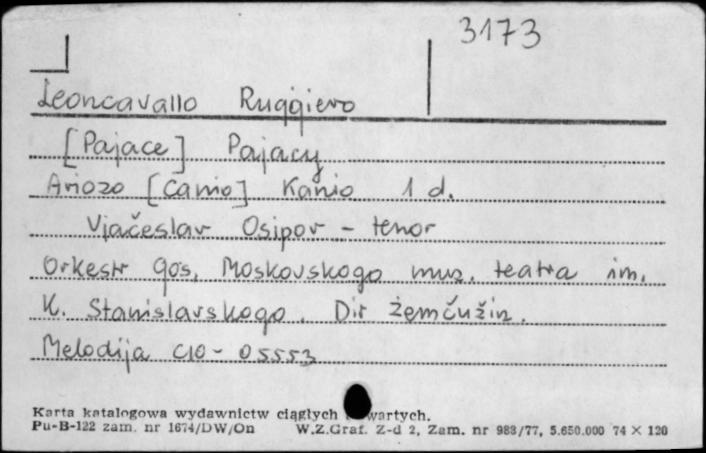 3173
Leoncavallo Ruggiero
[Pajace] Pajacy
Ariozo [Canio] Kanio 1 d.
Vjačeslav Osipov - tenor
Orkestr gos. Moskovskogo muz. teatra im.
K. Stanislavskogo. Dir Žemčužin.
Melodija C10-05553
Karta katalogowa wydawnictw ciągłych wartych.
Pu-B-122 zam. nr 1674/DW/On W.Z.Graf. Z-d 2, Zam. nr 983/77, 5.650.000 74 X 120